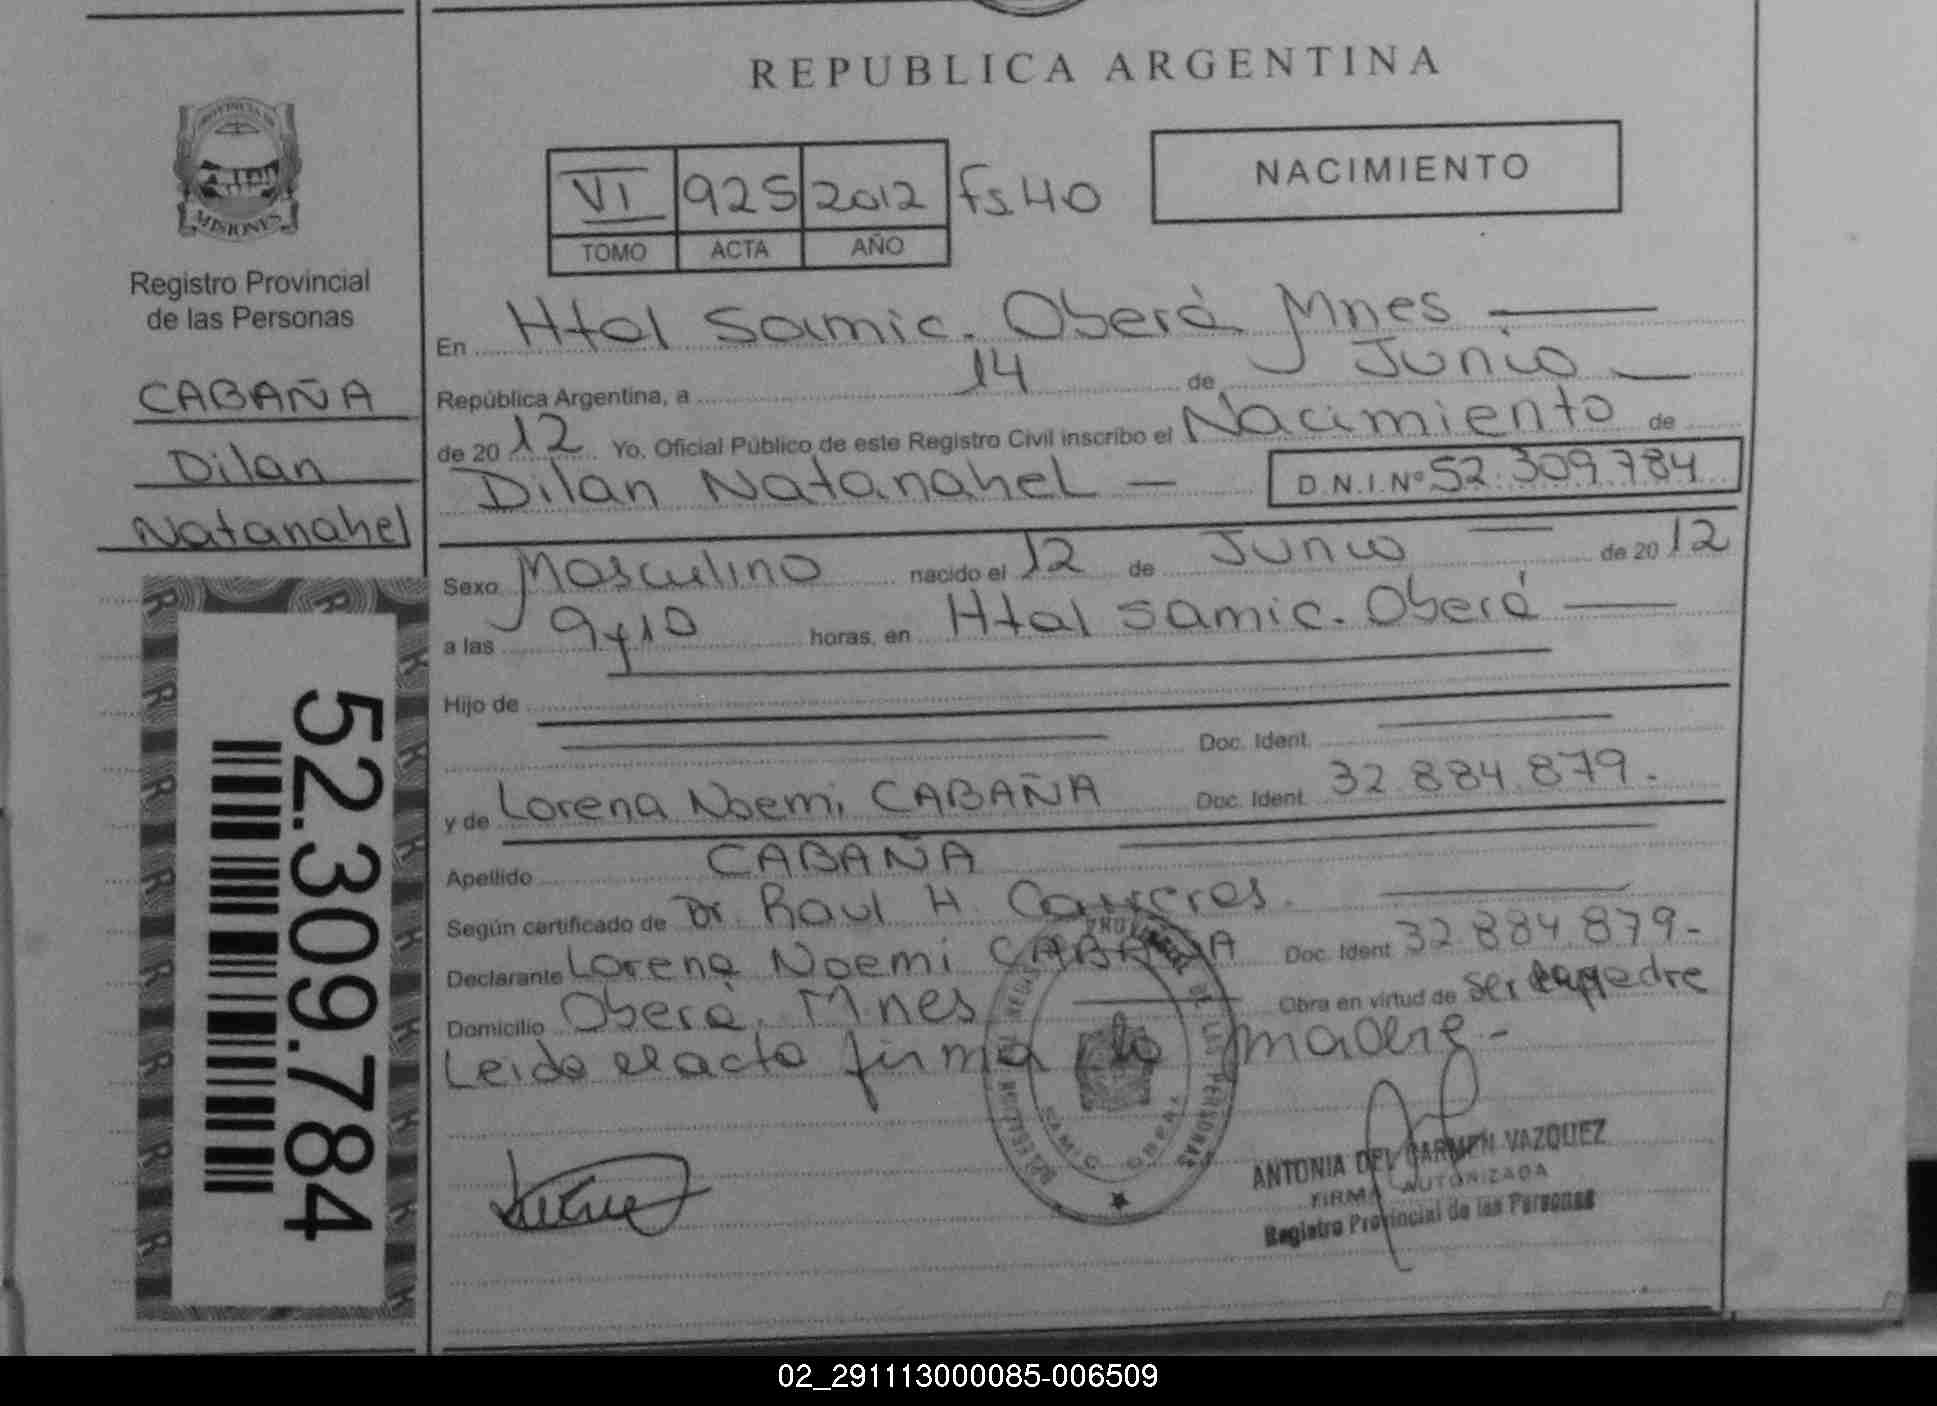 REPUBLICA ARGENTINA
PROVINCIA DE
MISIONES
Registro Provincial
de las Personas
CABAÑA
Dilan
Natanahel
52.309.784
VI 925 2012 fs 40
TOMO ACTA AÑO
NACIMIENTO
En Htal Samic. Oberá Mnes
República Argentina, a 14 de Junio
de 2012 Yo, Oficial Público de este Registro Civil inscribo el Nacimiento de
Dilan Natanahel D.N.I. Nº 52.309.784
Sexo Masculino nacido el 12 de Junio de 2012
a las 9y10 horas, en Htal Samic. Oberá
Hijo de
Doc. Ident.
y de Lorena Noemi CABAÑA Doc. Ident. 32.884.879.
Apellido CABAÑA
Según certificado de Dr. Raul H. Carreres.
Declarante Lorena Noemi CABAÑA Doc. Ident 32.884.879-
Domicilio Oberá. Mnes Obra en virtud de ser
Leido el acta firma la madre-
DE LAS PERSONAS
SAMIC OBERA
ANTONIA DEL CARMEN VAZQUEZ
FIRMA AUTORIZADA
Registro Provincial de las Personas
02_291113000085-006509